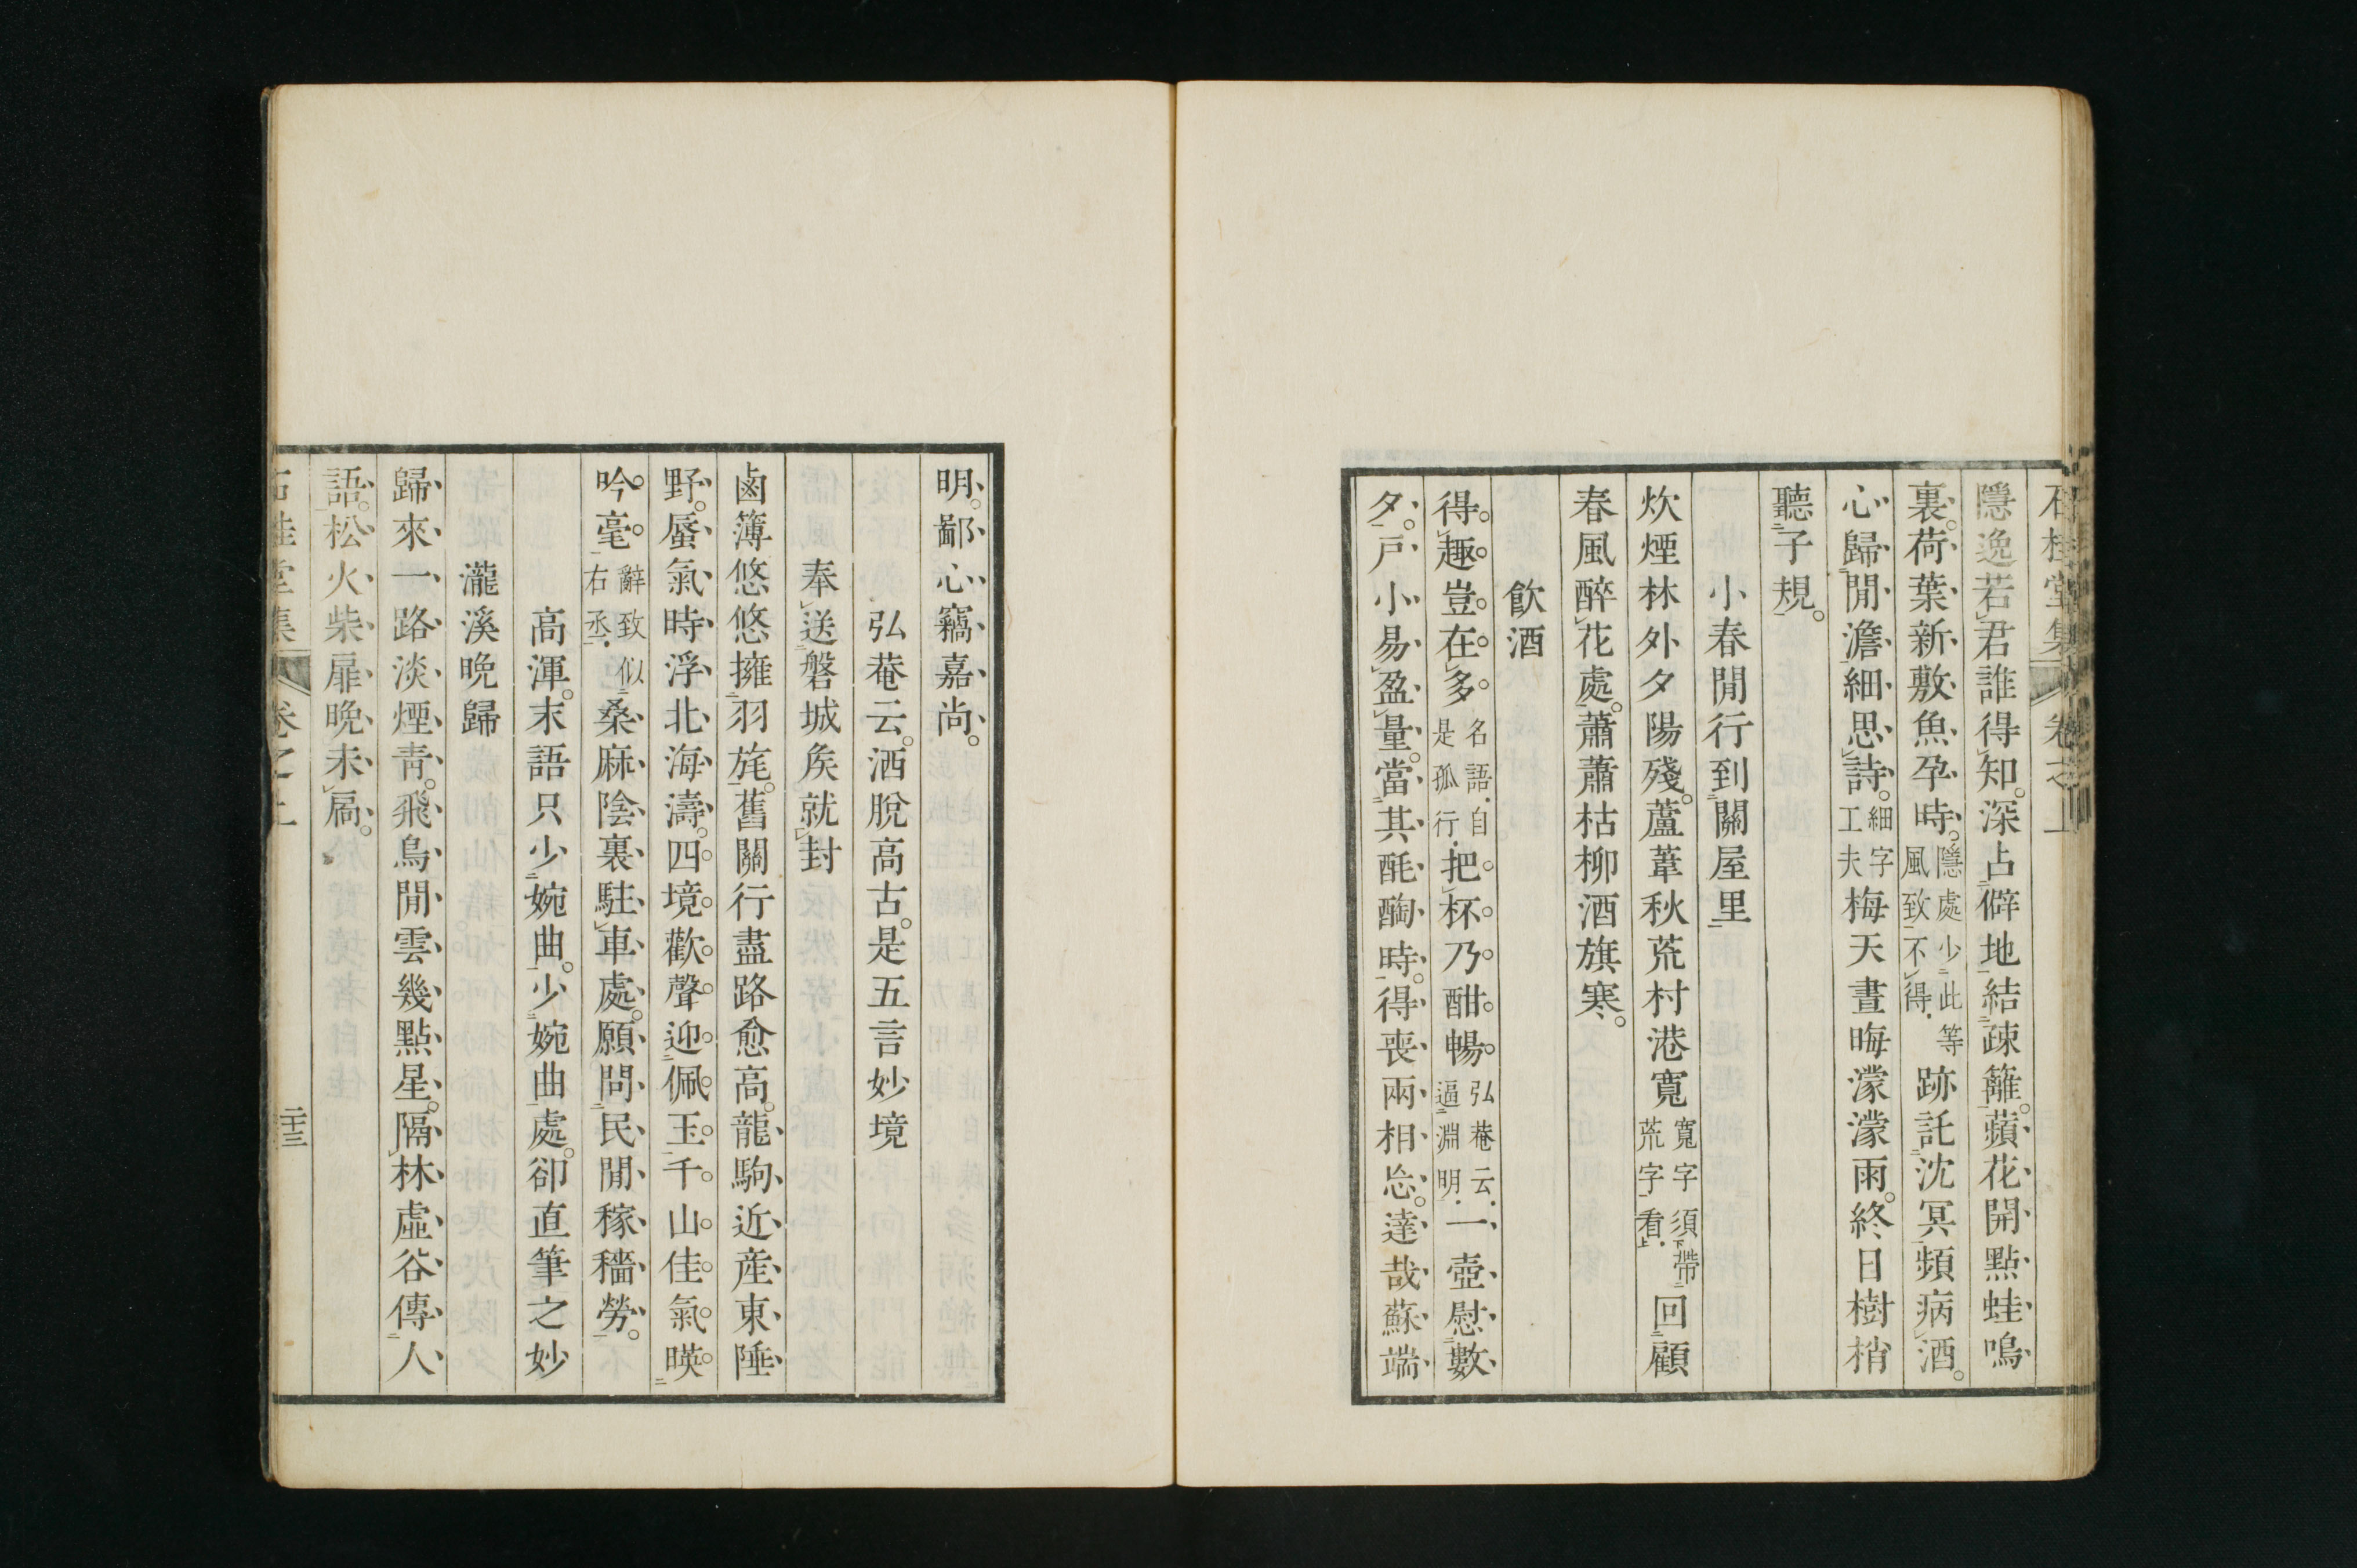 石桂堂集 卷之上
隱逸若君誰得知。深占僻地結疎籬。蘋花開點蛙鳴
裏。荷葉新敷魚孕時。隱處少此等風致不得.跡託沈冥頻病酒。
心歸閒澹細思詩。細字工夫梅天晝晦濛濛雨。終日樹梢
聽子規。
小春閒行到關屋里
炊煙林外夕陽殘。蘆葦秋荒村港寬寬字須帶荒字看.回顧
春風醉花處。蕭蕭枯柳酒旗寒。
飮酒
得趣豈在多名語.自是孤行.把杯乃酣暢弘菴云.逼淵明.一壺慰數
夕。戶小易盈量。當其酕醄時。得喪兩相忘。達哉蘇端
明。鄙心竊嘉尚。
弘菴云。洒脫高古。是五言妙境
奉送磐城矦就封
鹵簿悠悠擁羽旄。舊關行盡路愈高。龍駒近産東陲
野。蜃氣時浮北海濤。四境歡聲迎佩玉。千山佳氣暎
吟毫。辭致似右丞.桑麻陰裏駐車處。願問民閒稼穡勞。
高渾。末語只少婉曲。少婉曲處。卻直筆之妙
瀧溪晩歸
歸來一路淡煙靑。飛鳥閒雲幾點星。隔林虛谷傳人
語。松火柴扉晩未扃。
石桂堂集 卷之上 二十三